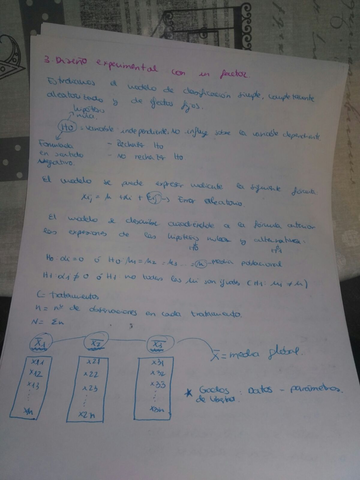 3. Diseño experimental con un factor
Estudiamos el modelo de clasificación simple, completamente
aleatorizado y de efectos fijos.
hipótesis nula
H0 = variable independiente no influye sobre la variable dependiente
Formulada en sentido negativo
- Rechazo H0
- no rechazo H0
El modelo se puede expresar mediante la siguiente fórmula
error aleatorio
El modelo se describe atendiendo a la fórmula anterior
las expresiones de las hipótesis nula y alternativa:
media poblacional
C: Tratamientos
n = nº de observaciones en cada tratamiento
x̄ = media global
x11 x21 x31
x12 x22 x32
x13 x23 x33
⋮ ⋮ ⋮
* Grados : datos - parámetros
de libertad